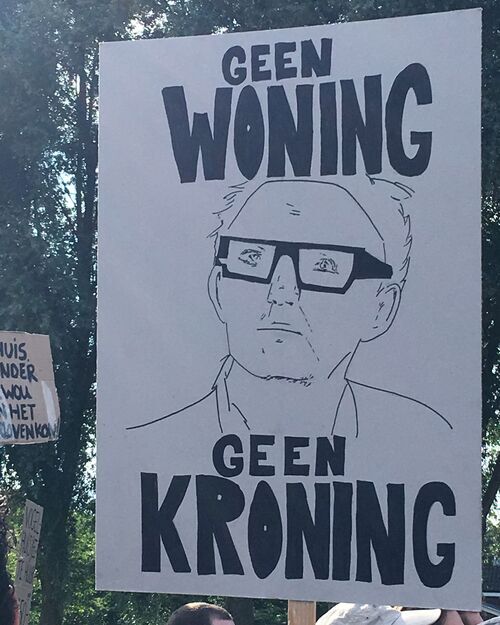 GEEN
WONING
GEEN
KRONING
HUIS
NDER
WOU
N HET